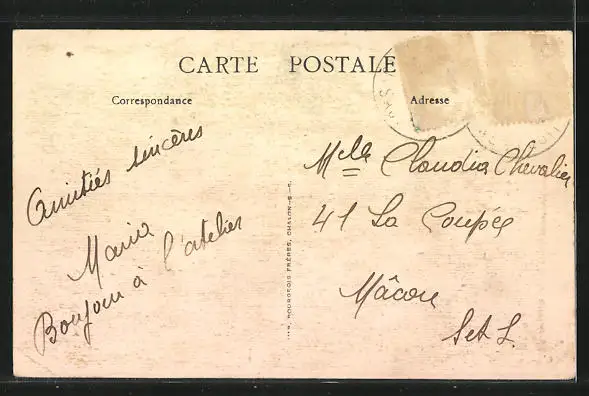 CARTE POSTALE
Correspondance
Adresse
Amitiés sincères
Maria
Bonjour à l'atelier
Melle Claudia Chevalier
41 La Coupée
Mâcon
S et L.
BOURGEOIS FRÈRES, CHALON-S-S.